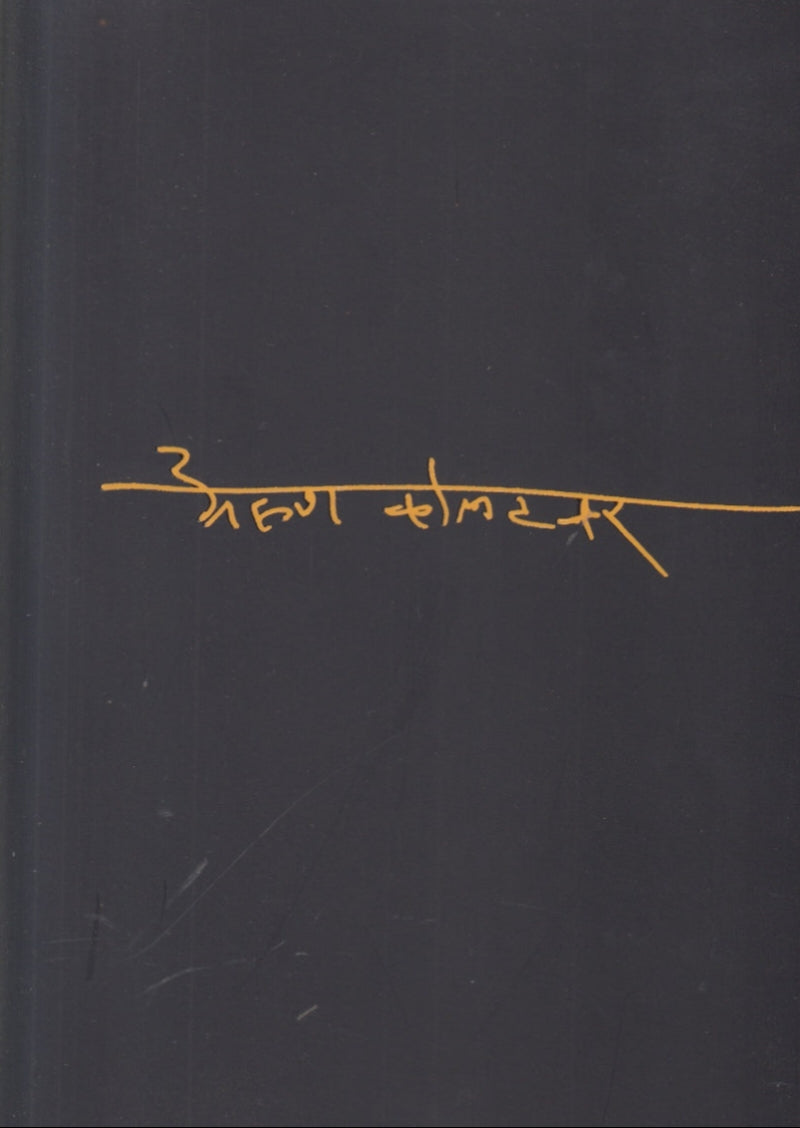 अरुण कोलटकर